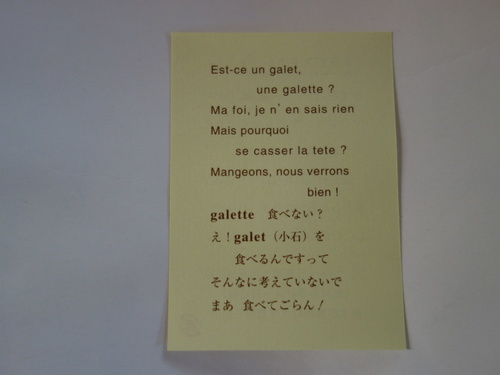 Est-ce un galet,
une galette ?
Ma foi, je n' en sais rien
Mais pourquoi
se casser la tete ?
Mangeons, nous verrons
bien !
galette 食べない？
え！galet（小石）を
食べるんですって
そんなに考えていないで
まあ 食べてごらん！